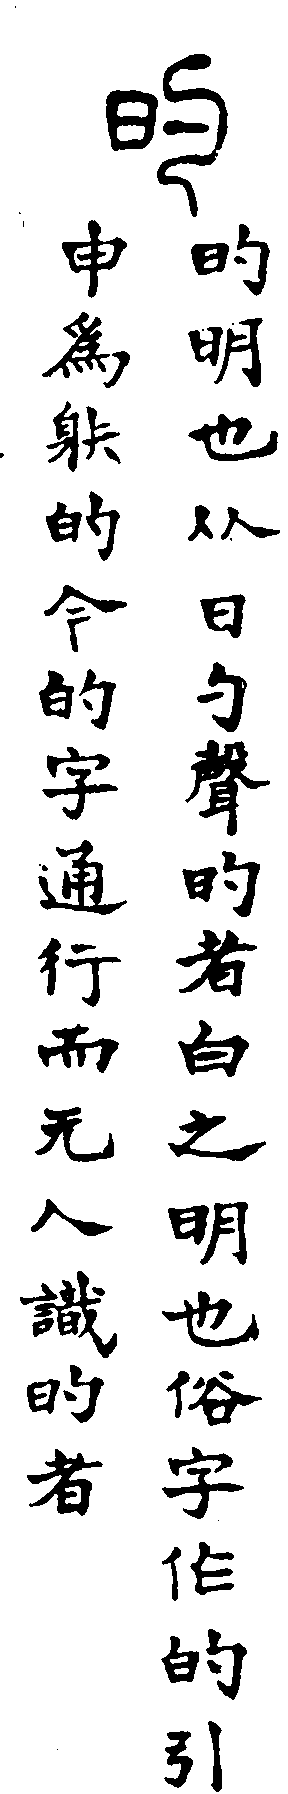 旳
旳明也从日勺聲旳者白之明也俗字作的引
申爲躲的今的字通行而无人識旳者